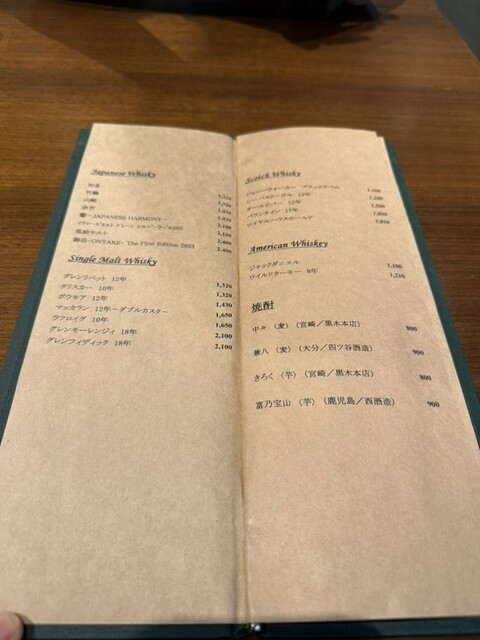 Japanese Whisky
知多
竹鶴
山崎
余市
響－JAPANESE HARMONY－
2,100
花鈴モルト 2,400
御岳-ONTAKE- The First Edition 2023 2,400
Single Malt Whisky
グレンリベット 12年 1,320
タリスカー 10年 1,320
ボウモア 12年 1,430
マッカラン 12年－ダブルカスター 1,650
ラフロイグ 10年 1,650
グレンモーレンジィ 18年 2,100
グレンフィディック 18年 2,100
Scotch Whisky
ジョニーウォーカー ブラックラベル
シーバスリーガル 12年
オールドパー 12年
バランタイン 17年
ロイヤルハウスホールド
American Whiskey
ジャックダニエル 1,100
ワイルドターキー 8年 1,210
焼酎
中々 〈麦〉（宮崎／黒木本店） 800
兼八 〈麦〉（大分／四ツ谷酒造） 900
きろく 〈芋〉（宮崎／黒木本店） 800
富乃宝山 〈芋〉（鹿児島／西酒造） 900